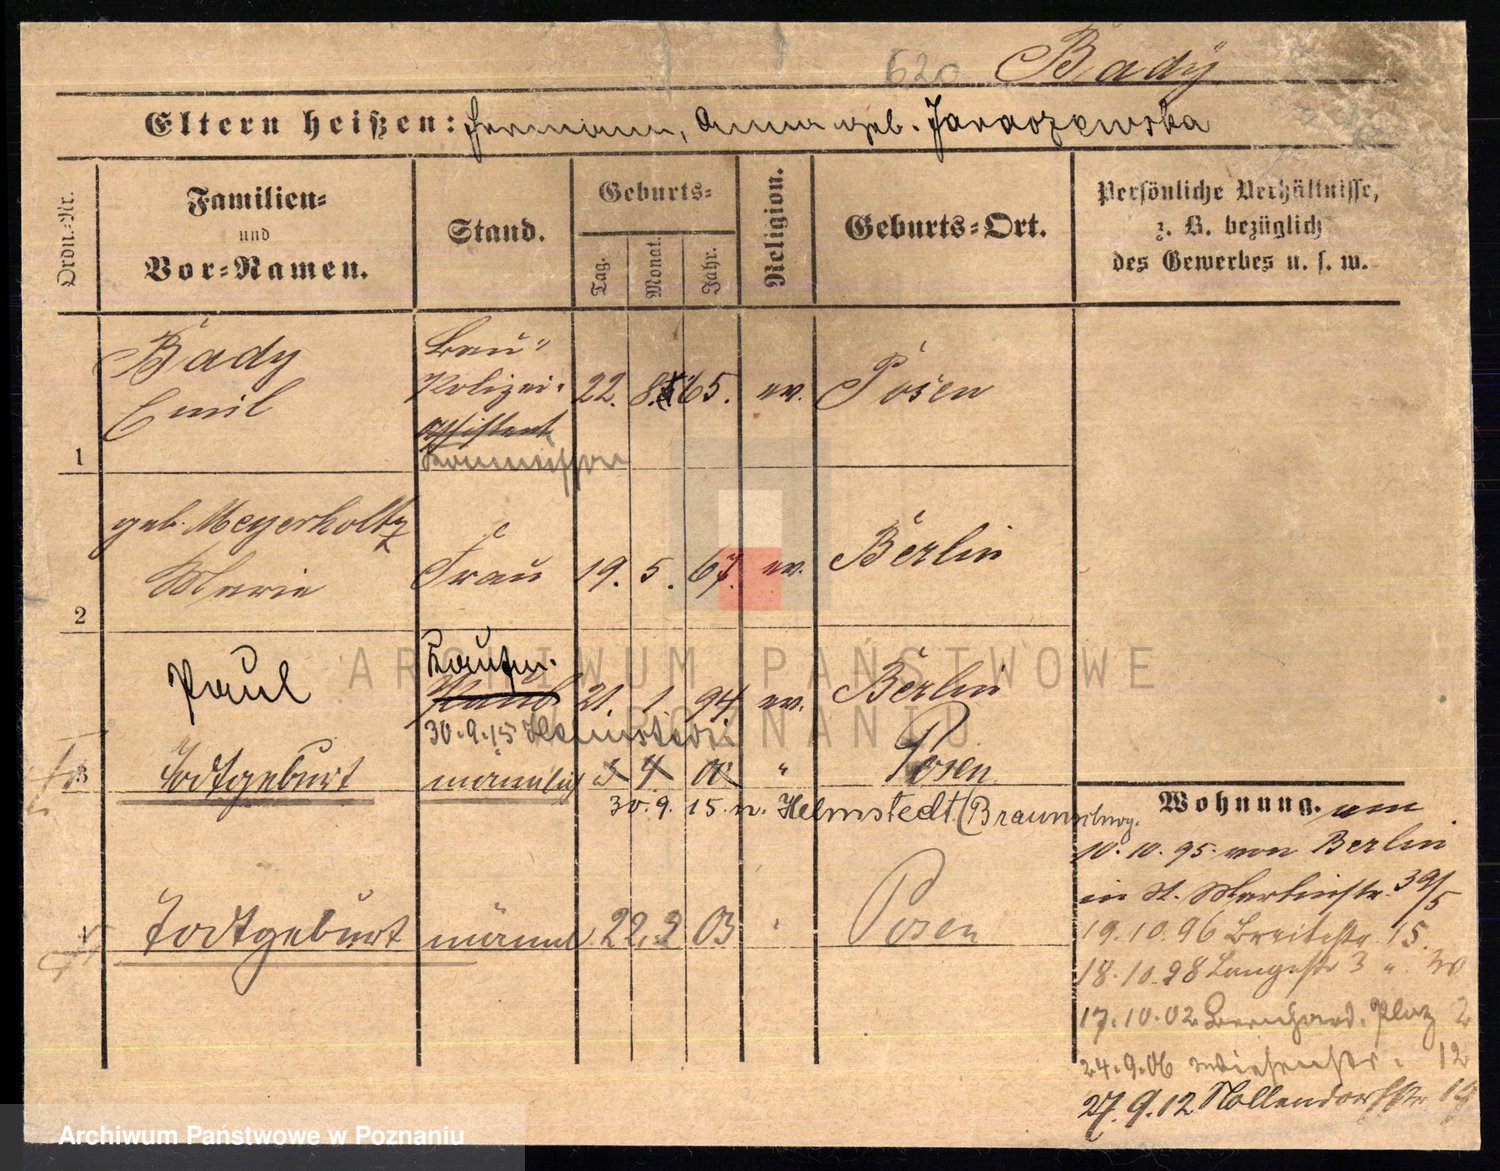 620 Bady
Eltern heißen: Hermann, Anna geb. Jaraczewska
Ordn.-Nr.
Familien-
und
Vor-Namen.
Stand.
Geburts-
Tag.
Monat.
Jahr.
Religion.
Geburts-Ort.
Persönliche Verhältnisse,
z. B. bezüglich
des Gewerbes u. s. w.
1
Bady
Emil
Bau-
Polizei-
assistent
Kommissar
22. 8. 65. ev. Posen
2
geb. Meyerholtz
Marie
Frau 19. 5. 67. ev. Berlin
Paul
Kaufm.
21. 1. 94 ev. Berlin
30.9.15 Helmstedt
3 Todtgeburt männlich 4 " Posen
30.9.15 n. Helmstedt (Braunschwg.
4 Todtgeburt männl 22. 2 03 Posen
Wohnung. am
10.10.95 von Berlin
in St. Martinstr. 39/5
19.10.96 Breitestr. 15.
18.10.98 Langestr 3
17.10.02 Bernhard. Platz 2
24.9.06 Wiesenstr. 12
27.9.12 Nollendorfstr
ARCHIWUM PAŃSTWOWE
W POZNANIU
Archiwum Państwowe w Poznaniu